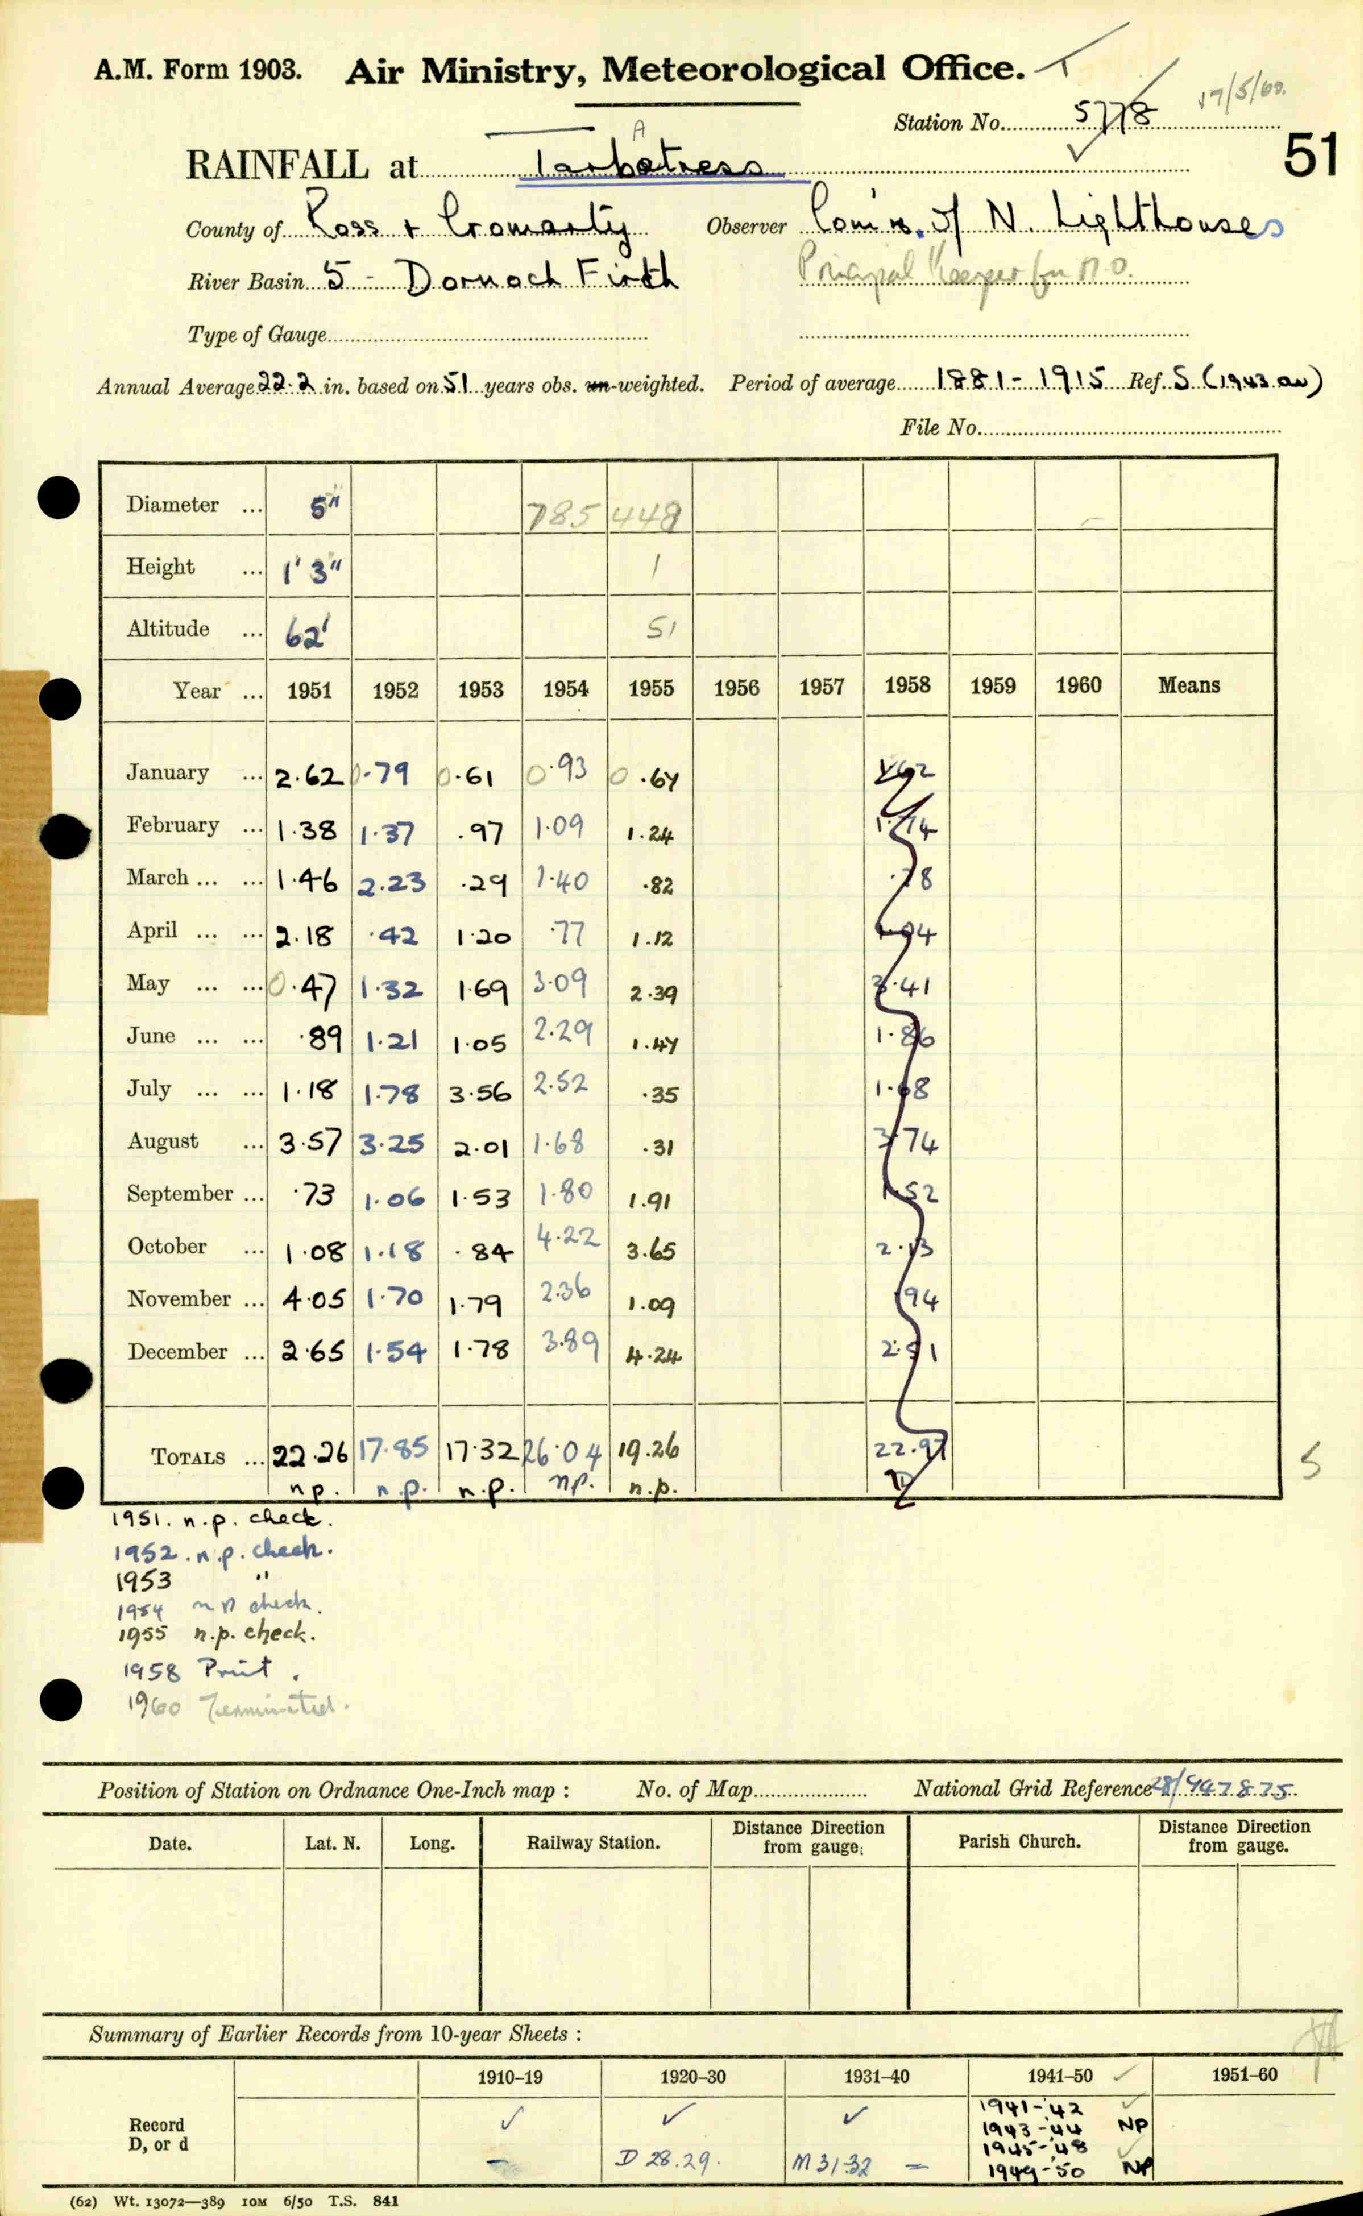 A.M. Form 1903. Air Ministry, Meteorological Office. T
Station No. 5778 17/5/60.
RAINFALL at Tarbatness A 51
County of Ross + Cromarty Observer Com'rs. of N. Lighthouses
River Basin 5 - Dornoch Firth Principal Keeper for M.O.
Type of Gauge
Annual Average 22.2 in. based on 51 years obs. un-weighted. Period of average 1881-1915 Ref. S (1943 av)
File No.
Diameter ... 5" 785 448
Height ... 1' 3" 1
Altitude ... 62' 51
Year ... 1951 1952 1953 1954 1955 1956 1957 1958 1959 1960 Means
January ... 2.62 0.79 0.61 0.93 0.64 1.62
February ... 1.38 1.37 .97 1.09 1.24 1.14
March ... ... 1.46 2.23 .29 1.40 .82 .78
April ... ... 2.18 .42 1.20 .77 1.12 1.04
May ... ... 0.47 1.32 1.69 3.09 2.39 3.41
June ... ... .89 1.21 1.05 2.29 1.47 1.86
July ... ... 1.18 1.78 3.56 2.52 .35 1.68
August ... 3.57 3.25 2.01 1.68 .31 3.74
September ... .73 1.06 1.53 1.80 1.91 1.52
October ... 1.08 1.18 .84 4.22 3.65 2.13
November ... 4.05 1.70 1.79 2.36 1.09 .94
December ... 2.65 1.54 1.78 3.89 4.24 2.51
TOTALS ... 22.26 17.85 17.32 26.04 19.26 22.97 5
n.p. n.p. n.p. n.p. n.p.
1951. n.p. check.
1952. n.p. check.
1953 "
1954 check.
1955 n.p. check.
1958 Print.
1960 Terminated.
Position of Station on Ordnance One-Inch map : No. of Map National Grid Reference 28/947875
Date. Lat. N. Long. Railway Station. Distance from gauge. Direction Parish Church. Distance from gauge. Direction
Summary of Earlier Records from 10-year Sheets :
1910–19 1920–30 1931–40 1941–50 ✓ 1951–60
Record D, or d ✓ ✓ ✓ 1941-'42 ✓
1943-'44 NP
D 28.29. M 31-32 – 1945-'48 ✓
1949-'50 NP
(62) Wt. 13072—389 10M 6/50 T.S. 841